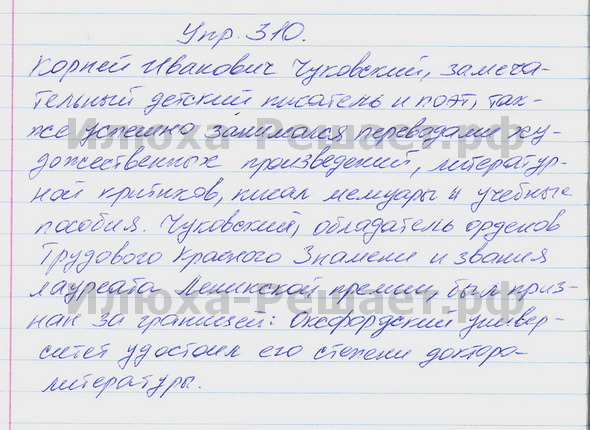 Упр. 310.
Корней Иванович Чуковский, замеча-
тельный детский писатель и поэт, так-
же успешно занимался переводами ху-
дожественных произведений, литератур-
ной критикой, писал мемуары и учебные
пособия. Чуковский, обладатель орденов
Трудового Красного Знамени и звания
лауреата Ленинской премии, был приз-
нан за границей: Оксфордский универ-
ситет удостоил его степени доктора
литературы.
Илюха-Решает.рф
Илюха-Решает.рф